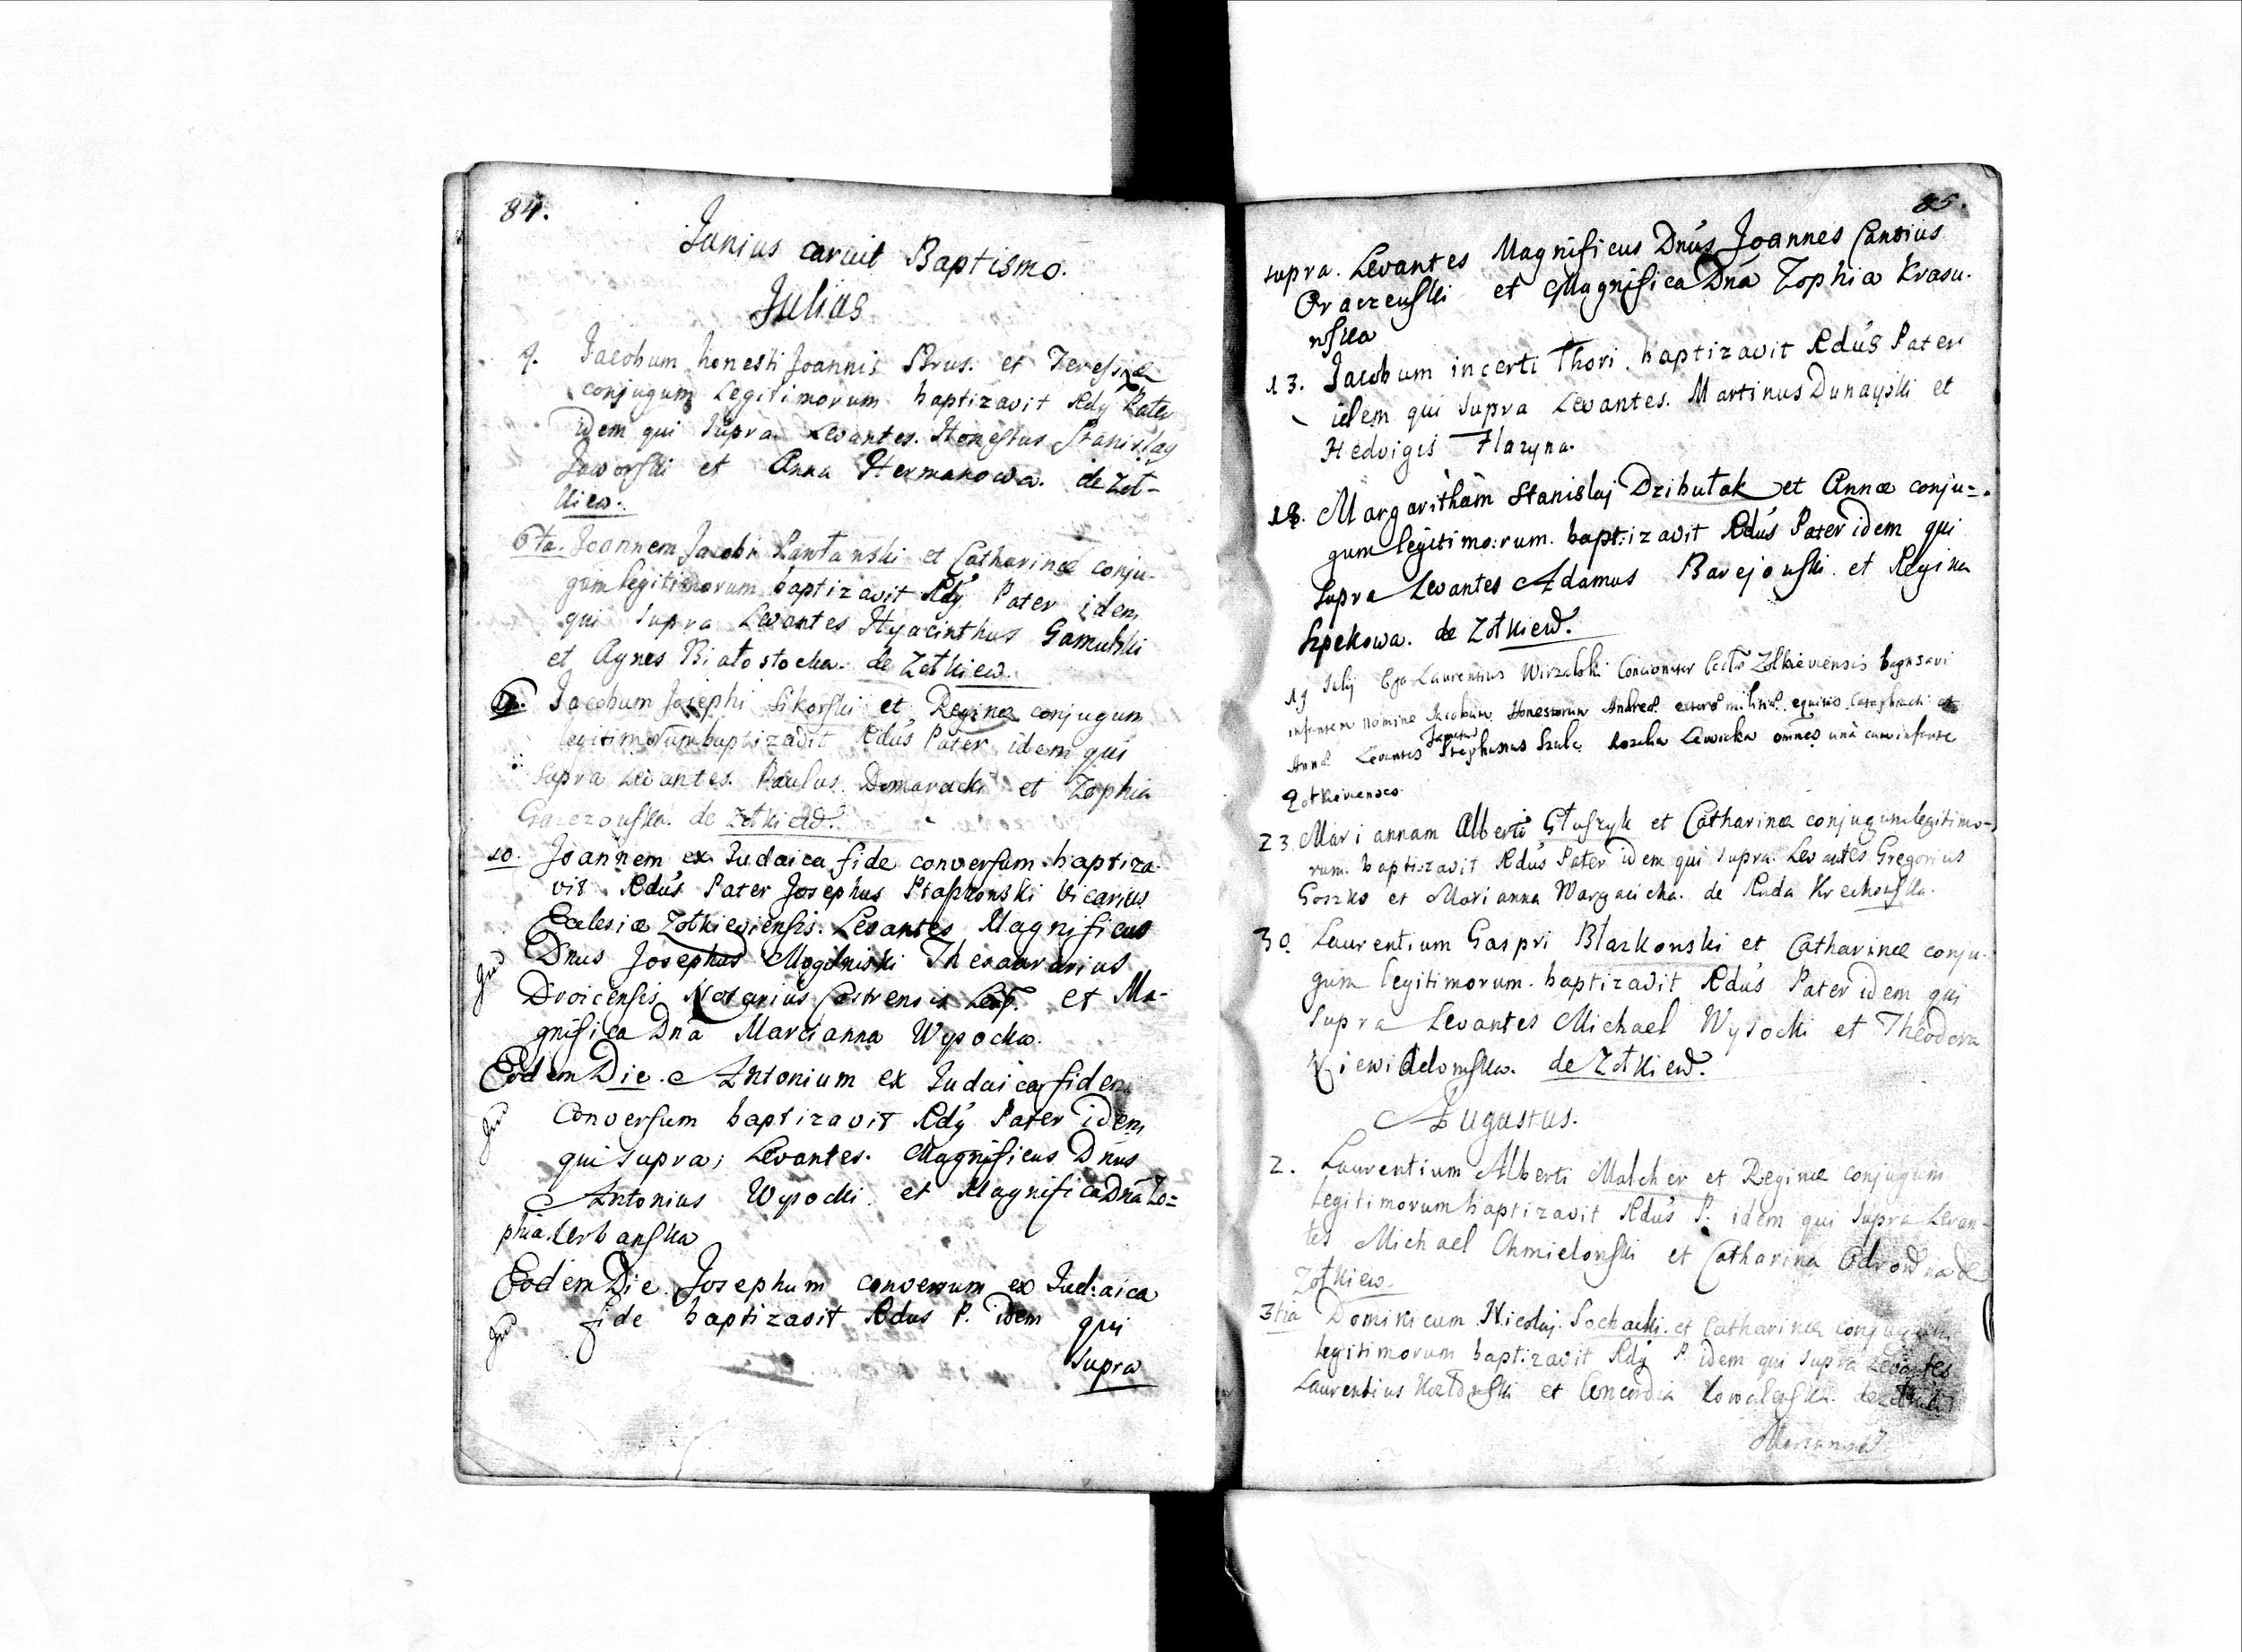 84.
Junius caruit Baptismo.
Julius
Jacobum honesti Joannis Brus. et Theressiæ
conjugum Legitimorum baptizavit Rdų Pater
idem qui supra Levantes. Honestus Stanislaų
Jaworski et Anna Hermanowa. de Żoł-
kiew.
6ta. Joannem Jacobi et Catharinæ conju-
gum legitimorum baptizavit Rdų Pater idem
qui supra Levantes Hyacinthus Gamulski
et Agnes Białostocka. de Żołkiew.
Jacobum Josephi Sikorski et Reginæ conjugum
legitimorum baptizavit Rdus Pater idem qui
supra Levantes. Paulus Domaracki et Zophia
de Żołkiew.
10. Joannem ex Judaica fide conversum baptiza
vit Rdus Pater Josephus Vicarius
Ecclesiæ Żołkieviensis. Levantes Magnificus
Dnus Josephus Mogilniski Thesaurarius
Notarius Castrensis et Ma-
gnifica Dna Marcianna Wysocka.
Eodem Die. Antonium ex Judaica fidem
Conversum baptizavit Rdų Pater idem
qui supra; Levantes. Magnificus Dnus
Antonius Wysocki et Magnifica Dna Zo=
phia Serbanska
Eodem Die Josephum conversum ex Judaica
fide baptizavit Rdus P. idem qui
supra
85.
supra. Levantes Magnificus Dnus Joannes Cantius
et Magnifica Dna Zophia Krasu-
wska
13. Jacobum incerti Thori baptizavit Rdus Pater
idem qui supra Levantes. Martinus Dunayski et
Hedvigis
18. Margaritham Stanislai Dzibułak et Annæ conju=
gum legitimo:rum. baptizavit Rdus Pater idem qui
supra Levantes Adamus Barejowski et Regina
Szpekowa. de Żołkiew.
19 Julij Ego Laurentius Wirzalski Żolkieviensis
infantem nomine Jacobum Honestorum
Annæ Levantes Stephanus Szulc Lewicka omnes unà cum infante
Żołkievienses
23. Mariannam Alberti Głuszyk et Catharinæ conjugum legitimo-
rum. baptizavit Rdus Pater idem qui supra Levantes Gregorius
Goszko et Marianna Wargacicka. de Ruda Krechowska.
30. Laurentium Gaspri Blazkowski et Catharinæ conju-
gum legitimorum. baptizavit Rdus Pater idem qui
supra Levantes Michael Wysocki et Theodora
de Żołkiew.
Augustus.
2. Laurentium Alberti Malcher et Reginæ conjugum
Legitimorum baptizavit Rdus P. idem qui supra Levan-
tes Michael Chmielowski et Catharina
Żołkiew.
3tia Dominicum Nicolai Sochacki. et Catharinæ conjugum
legitimorum baptizavit Rdų P. idem qui supra Levantes
Laurentius et Concordia Kowalewska.